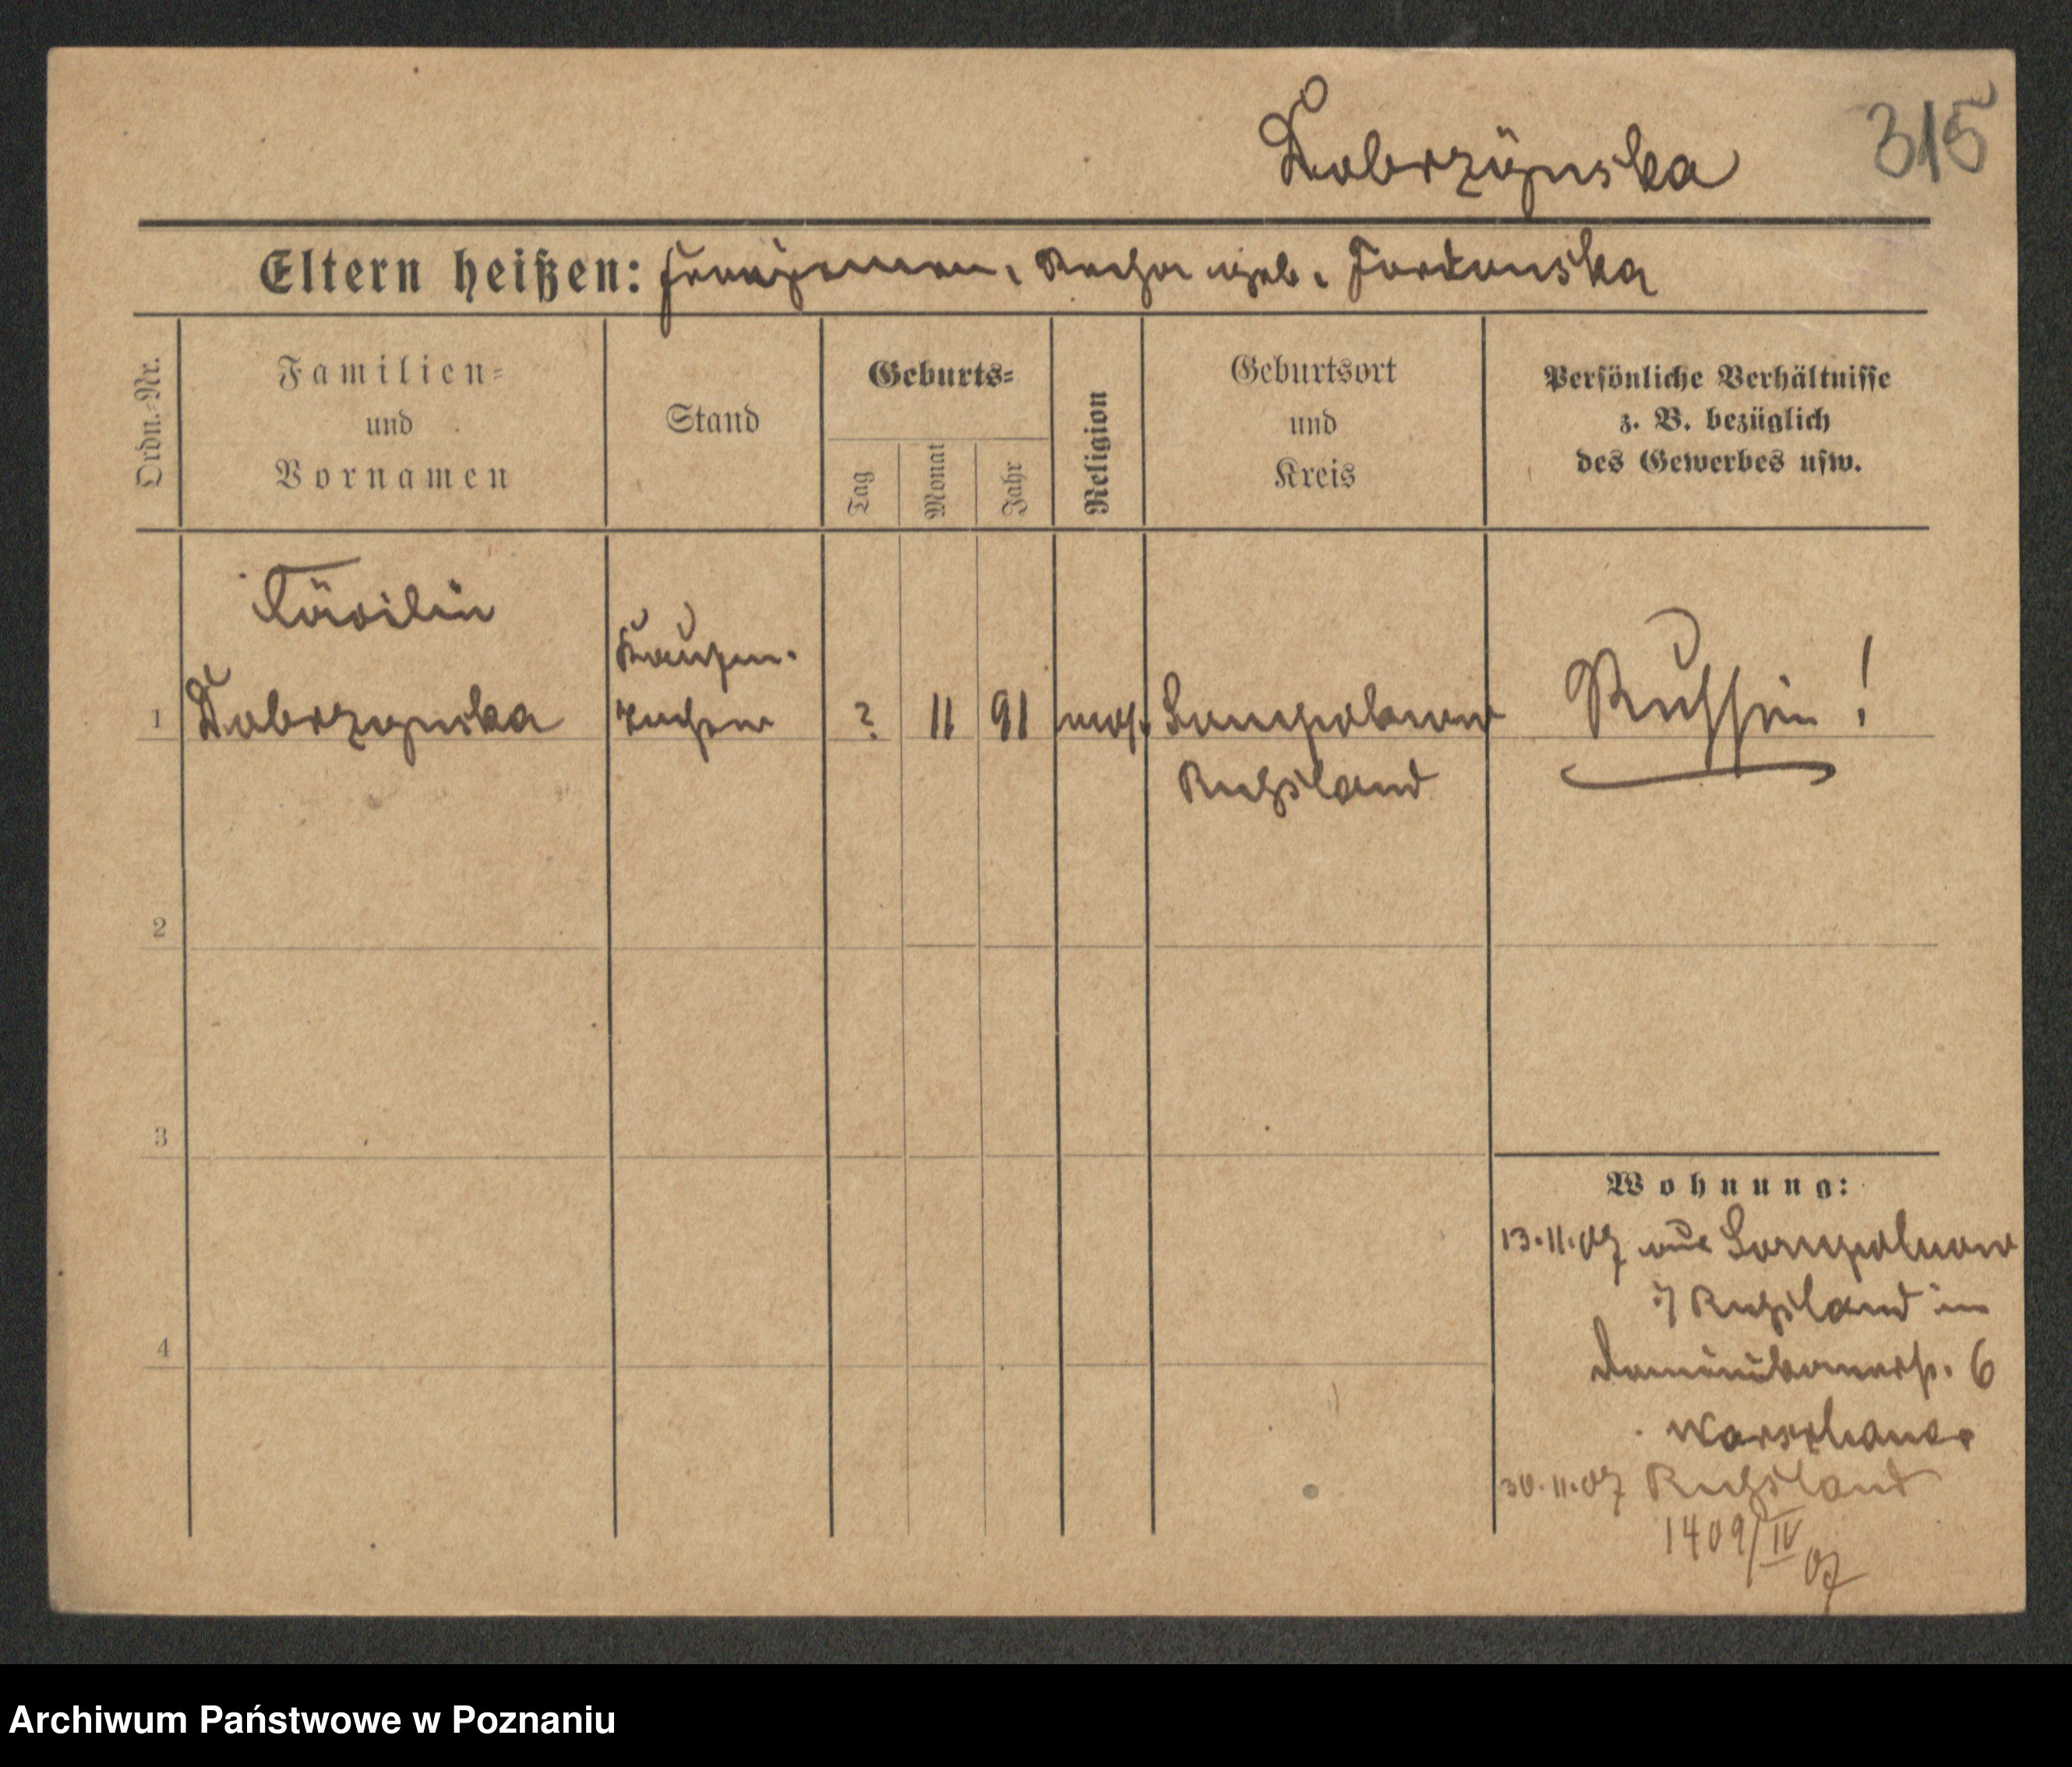 Dobrzÿnska
315
Eltern heißen: geb. Jordanska
Ordn.-Nr.
Familien=
und
Vornamen
Stand
Geburts=
Tag
Monat
Jahr
Religion
Geburtsort
und
Kreis
Persönliche Verhältnisse
z. B. bezüglich
des Gewerbes usw.
1
Dobrzynska
? 11 91 mos.
Sompolnow
Rußland
Russin!
2
3
4
Wohnung:
13.11.07 aus Sompolnow
i/ Rußland in
Dominikanerstr. 6
Warschauer
30.11.07 Rußland
1409/IV 07
Archiwum Państwowe w Poznaniu